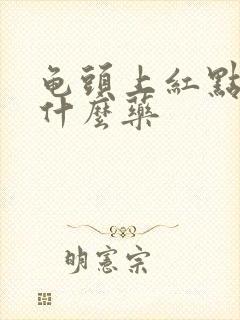 龟頭上紅點
什麼藥
明憲宗